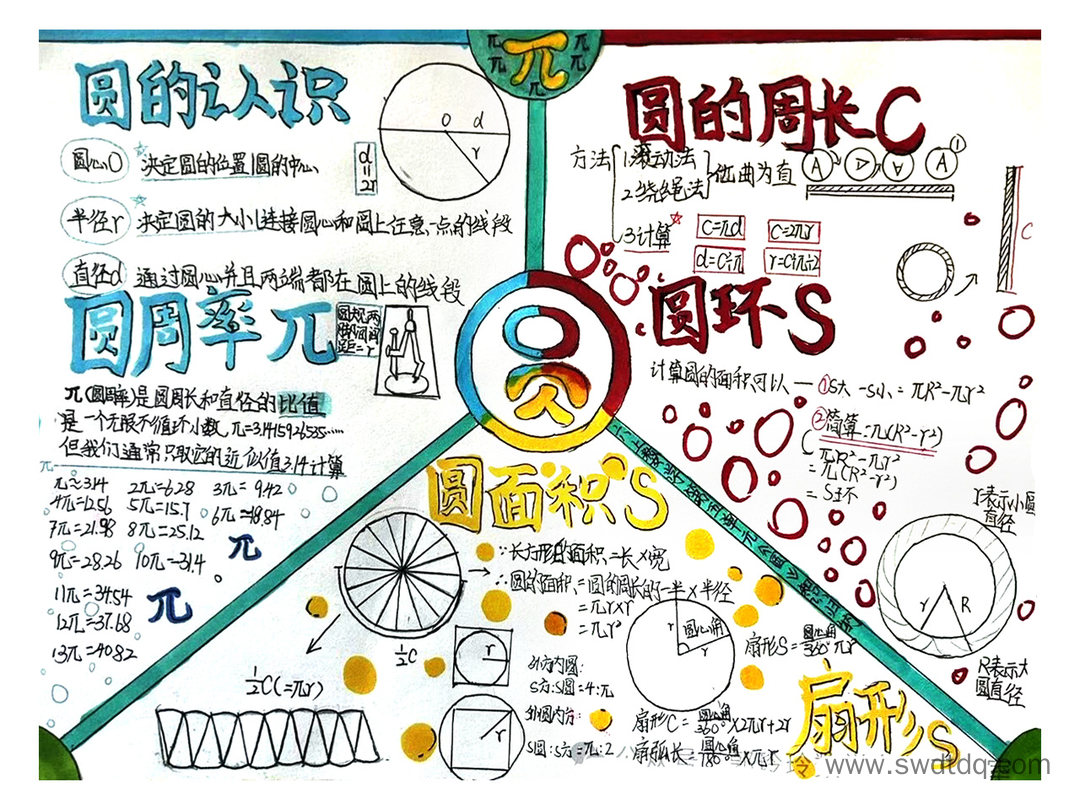 π
圆的认识
圆心O 决定圆的位置 圆的中心
半径r 决定圆的大小 连接圆心和圆上任意一点的线段
直径d 通过圆心并且两端都在圆上的线段
O d
r
d=2r
圆周率π
圆规两脚间距=r
π(圆周率)是圆周长和直径的比值
是一个无限不循环小数, π=3.1415926535……
但我们通常只取它的近似值3.14计算
π≈3.14 2π=6.28 3π=9.42
4π=12.56 5π=15.7 6π=18.84
7π=21.98 8π=25.12
9π=28.26 10π=31.4
11π=34.54
12π=37.68
13π=40.82
π
π
圆
圆的周长C
方法 1.滚动法
2绕绳法
化曲为直
3计算
C=πd C=2πr
d=C÷π r=C÷π÷2
A A A A
C
圆环S
计算圆的面积可以 ①S大-S小=πR²-πr²
②简算:π(R²-r²)
πR²-πr²
=π(R²-r²)
=S环
r表示小圆直径
r R
R表示大圆直径
圆面积S
∵长方形的面积=长×宽
∴圆的面积=圆的周长的一半×半径
=πr×r
=πr²
½C
½C(=πr)
r
外方内圆:
S方:S圆=4:π
r
外圆内方:
S圆:S方=π:2
r 圆心角
r
扇形S=圆心角/360° πr²
扇形C=圆心角/360°×2πr+2r
扇弧长=圆心角/180°×πr
扇形S
www.swdtdq.com